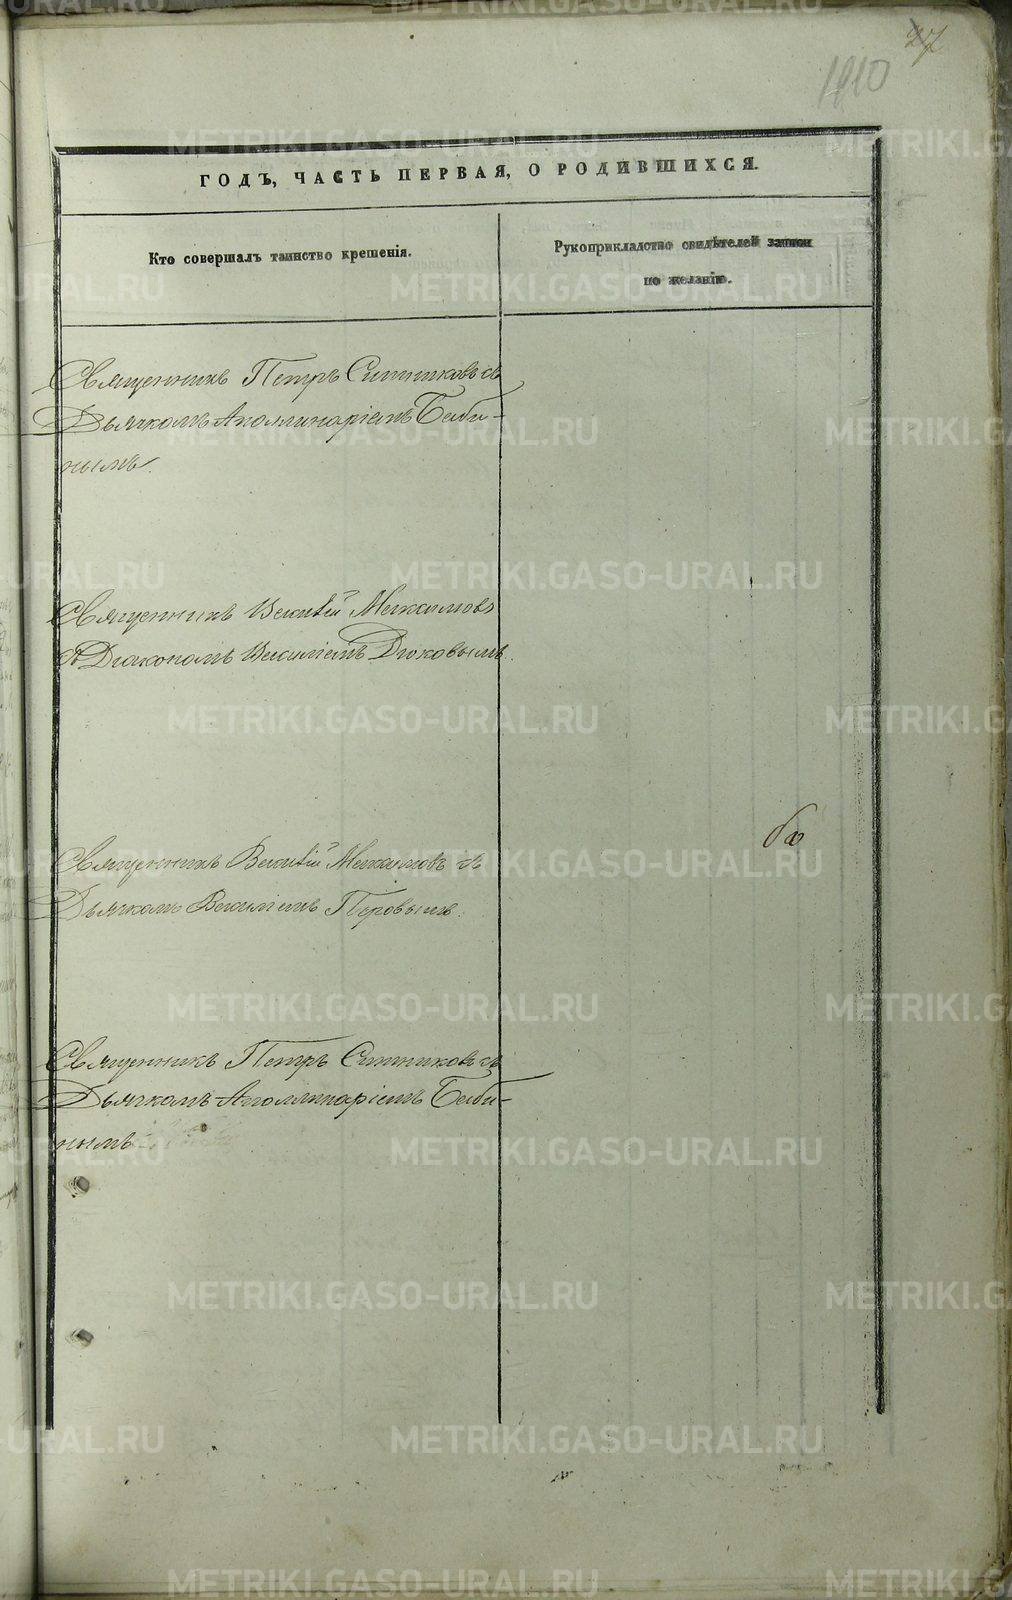 27
1910
ГОДЪ, ЧАСТЬ ПЕРВАЯ, О РОДИВШИХСЯ.
Кто совершалъ таинство крещенія.
Рукоприкладство свидѣтелей записи
по желанію.
Священникъ Петръ Ситниковъ съ
Дьячкомъ Аполлинаріемъ Баби-
нымъ.
Священникъ Максимовъ
съ Діакономъ Василіемъ Дюковымъ.
Священникъ Максимовъ съ
Дьячкомъ Василіемъ Перовымъ.
Священникъ Петръ Ситниковъ съ
Дьячкомъ Аполлинаріемъ Баби-
нымъ
METRIKI.GASO-URAL.RU